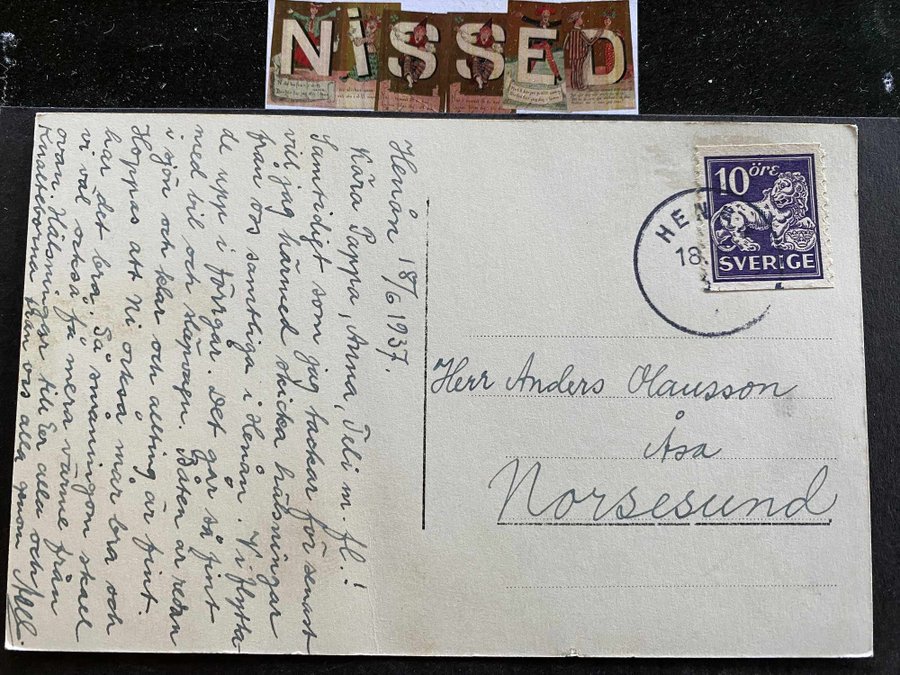 NISSED
HEN
18.
10 ÖRE
SVERIGE
Henån 18/6 1937.
Kära Pappa, Anna, Teli m. fl.!
Samtidigt som jag tackar för senast
vill jag härmed skicka hälsningar
från oss samtliga i Henån. Vi flytta
de upp i förrgår. Det går så fint
med bil och släpvagn. Båten är redan
i sjön och klar och allting är fint.
Hoppas att Ni också mår bra och
har det bra. Så småningom skael
vi väl också få mera värme från
ovan. Hälsningar till Er alla och
Knalteborna från oss alla genom
Herr Anders Olausson
Åsa
Norsesund